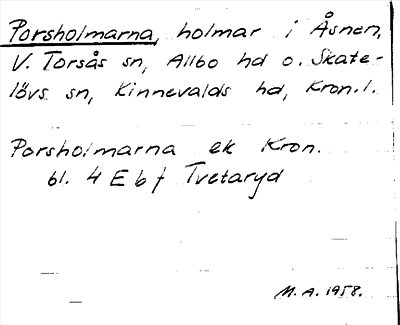 Porsholmarna, holmar i Åsnen,
V. Torsås sn, Allbo hd o. Skate-
lövs sn, Kinnevalds hd, Kron. l.
Porsholmarna ek Kron.
bl. 4 E b f Tvetaryd
M. A. 1958.